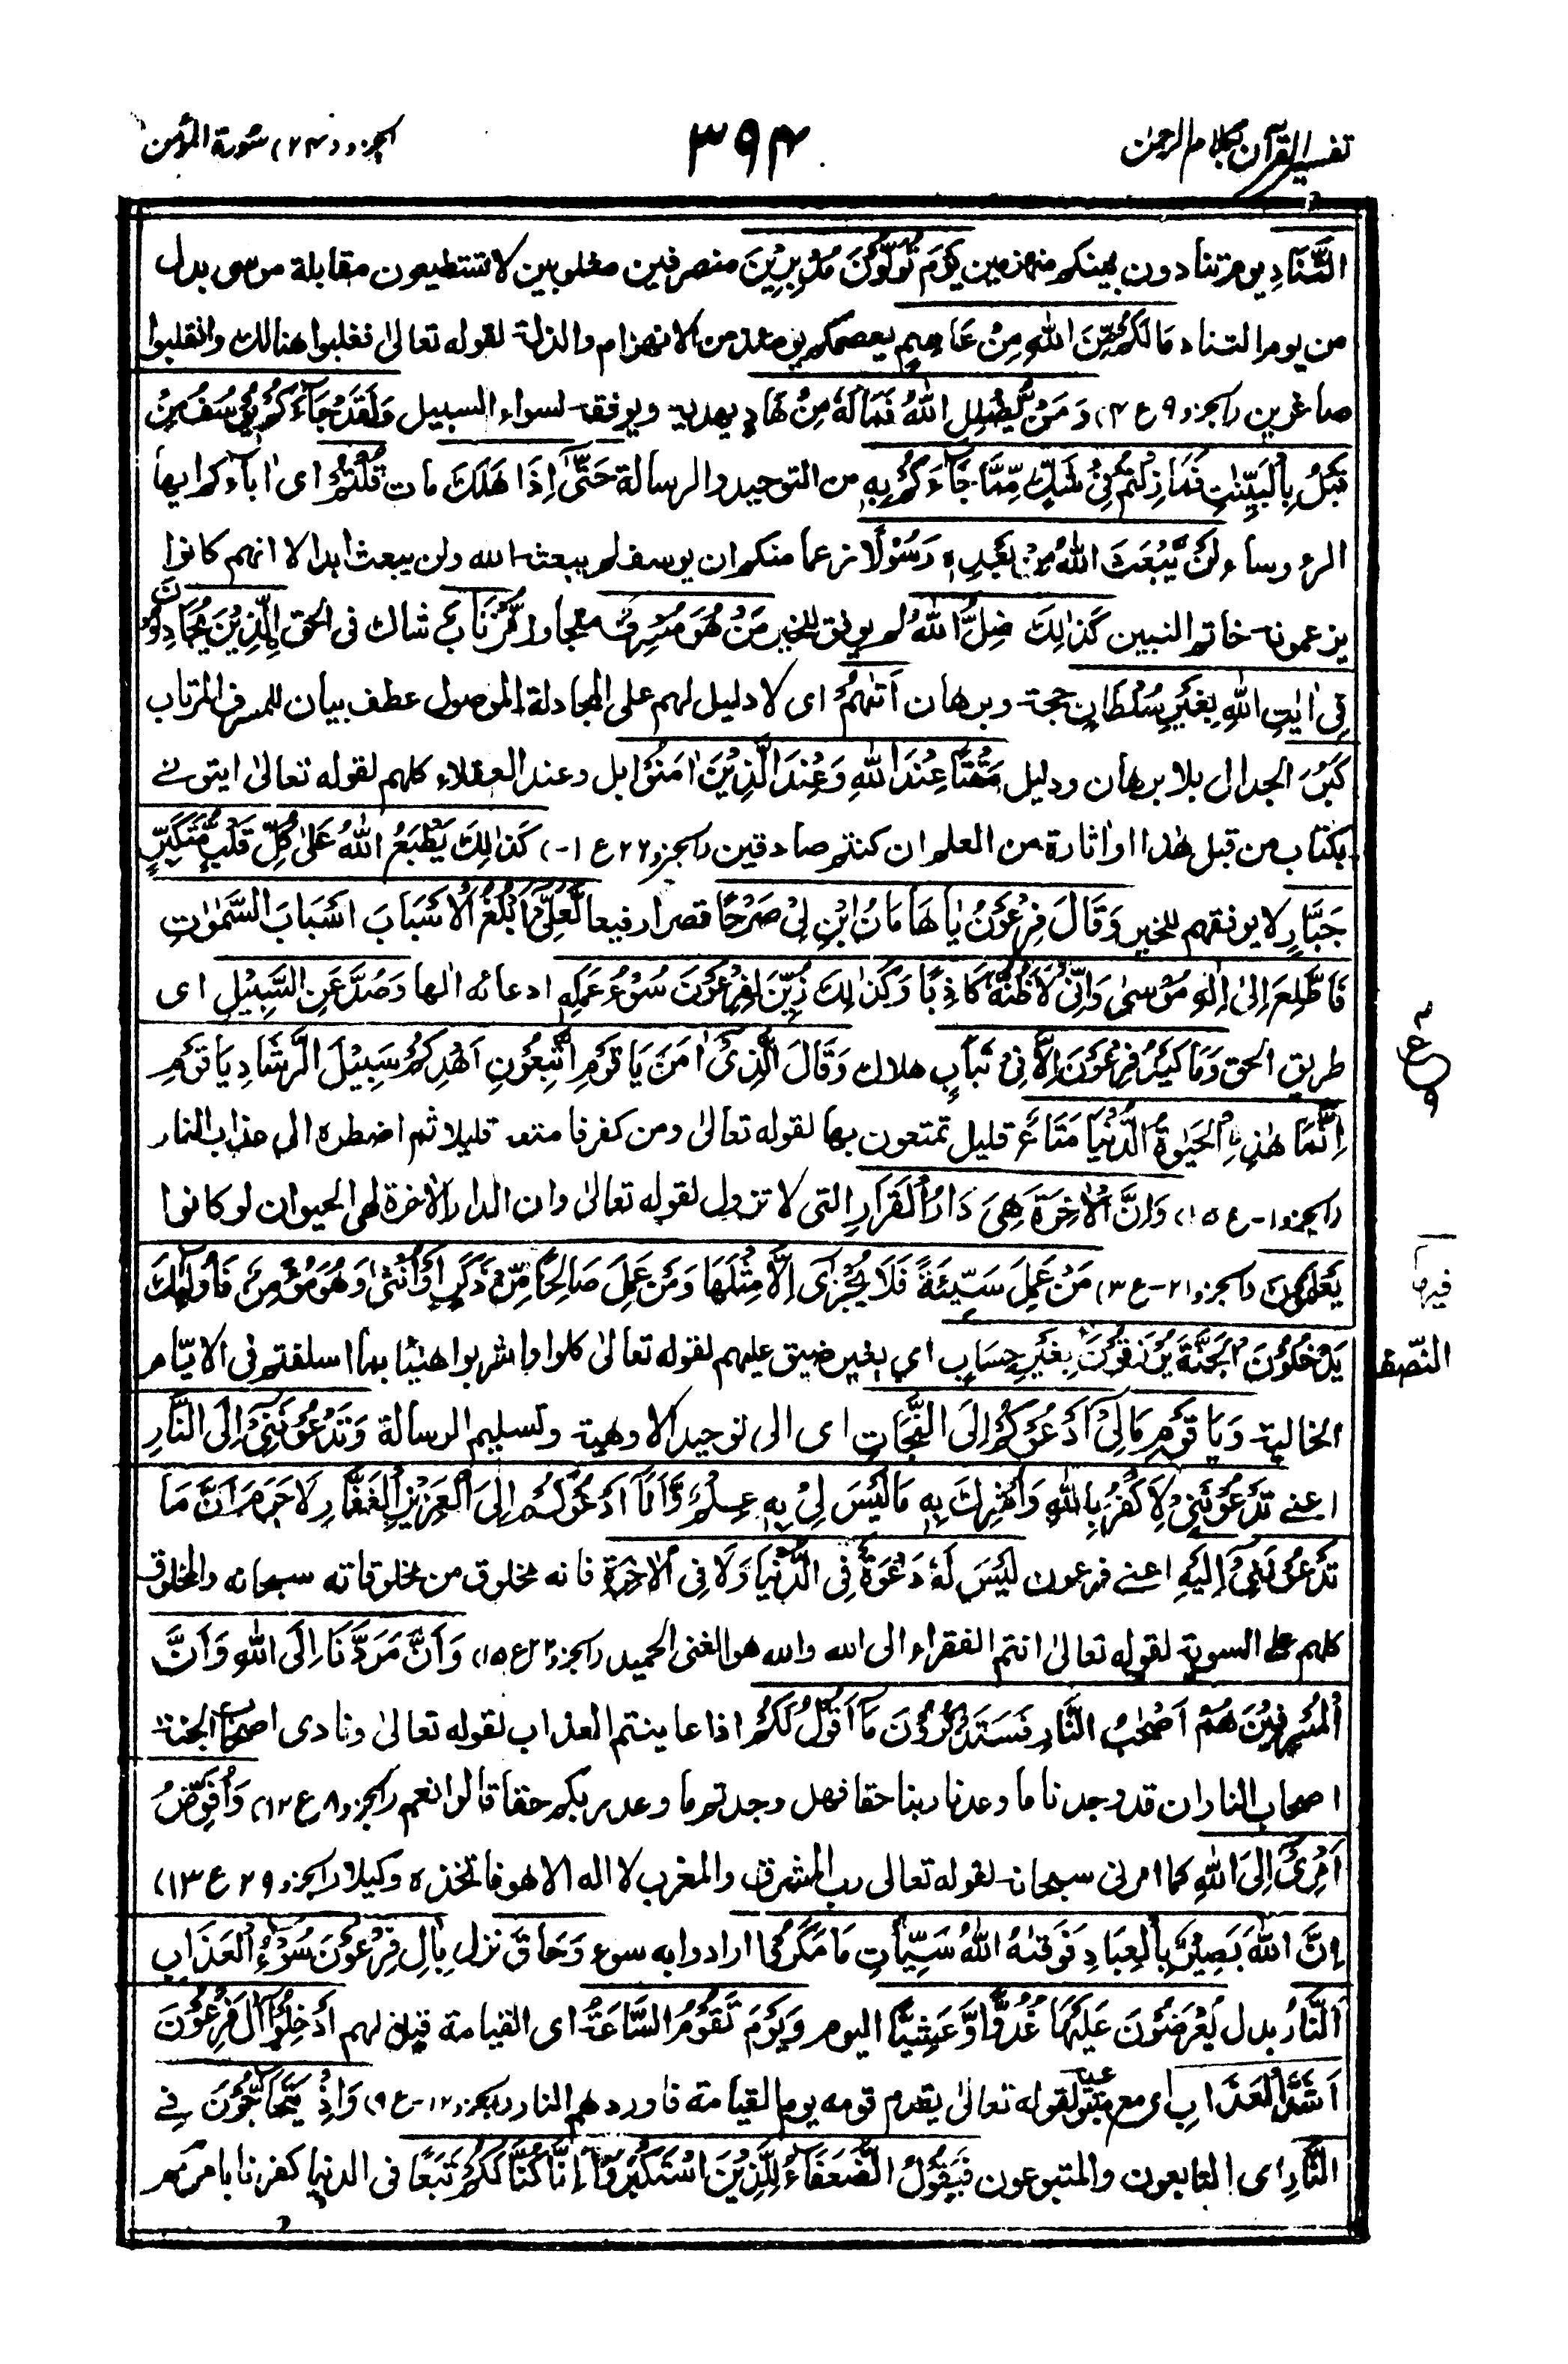 تفسير القرآن بكلام الرحمن
٣٩٤
الجزو (٢٤) سُورة المؤمن
التَّنَادِ يوم تنادون بينكم منهزمين يَوْمَ تُوَلُّوْنَ مُدْبِرِيْنَ منصرفين مغلوبين لا تستطيعون مقابلة موسى بدل
من يوم التناد مَالَكُمْ مِّنَ اللّٰهِ مِنْ عَاصِمٍ يعصمكم يومئذ من الانهزام والذلة لقوله تعالىٰ فغلبوا هنالك وانقلبوا
صاغرين (الجزو ٩ ع ٤) وَمَنْ يُّضْلِلِ اللّٰهُ فَمَا لَهٗ مِنْ هَادٍ يهديه ويوفقه لسواء السبيل وَلَقَدْ جَآءَكُمْ يُوْسُفُ مِنْ
قَبْلُ بِالْبَيِّنٰتِ فَمَا زِلْتُمْ فِيْ شَكٍّ مِّمَّا جَآءَكُمْ بِهٖ من التوحيد والرسالة حَتّٰى اِذَا هَلَكَ مات قُلْتُمْ اى اٰباءكم ايها
الرءوساء لَنْ يَّبْعَثَ اللّٰهُ مِنْۢ بَعْدِهٖ رَسُوْلًا زعما منكم ان يوسف لم يبعثه الله ولن يبعث ابدا لا انهم كانوا
يزعمونه خاتم النبيين كَذٰلِكَ يُضِلُّ اللّٰهُ لم يوفق للخير مَنْ هُوَ مُسْرِفٌ متجاوز مُّرْتَابٌ شاك فى الحق الَّذِيْنَ يُجَادِلُوْنَ
فِيْ اٰيٰتِ اللّٰهِ بِغَيْرِ سُلْطَانٍ حجة وبرهان اَتٰهُمْ اى لا دليل لهم على المجادلة الموصول عطف بيان للمسرف المرتاب
كَبُرَ الجدال بلا برهان ودليل مَقْتًا عِنْدَ اللّٰهِ وَعِنْدَ الَّذِيْنَ اٰمَنُوْا بل وعند العقلاء كلهم لقوله تعالىٰ ايتونى
بكتاب من قبل هٰذا او اثارة من العلم ان كنتم صادقين (الجزو ٢٦ ع ١-) كَذٰلِكَ يَطْبَعُ اللّٰهُ عَلٰى كُلِّ قَلْبِ مُتَكَبِّرٍ
جَبَّارٍ لا يوفقهم للخير وَقَالَ فِرْعَوْنُ يٰا هَامَانُ ابْنِ لِيْ صَرْحًا قصرا رفيعا لَّعَلِّيْٓ اَبْلُغُ الْاَسْبَابَ اَسْبَابَ السَّمٰوٰتِ
فَاَطَّلِعَ اِلٰى اِلٰهِ مُوْسٰى وَاِنِّيْ لَاَظُنُّهٗ كَاذِبًا وَكَذٰلِكَ زُيِّنَ لِفِرْعَوْنَ سُوْٓءُ عَمَلِهٖ ادعائه الٰها وَصُدَّ عَنِ السَّبِيْلِ اى
طريق الحق وَمَا كَيْدُ فِرْعَوْنَ اِلَّا فِيْ تَبَابٍ هلاك وَقَالَ الَّذِيْٓ اٰمَنَ يَا قَوْمِ اتَّبِعُوْنِ اَهْدِكُمْ سَبِيْلَ الرَّشَادِ يَا قَوْمِ
اِنَّمَا هٰذِهِ الْحَيٰوةُ الدُّنْيَا مَتَاعٌ قليل تمتعون بها لقوله تعالىٰ ومن كفر فامتعه قليلا ثم اضطره الى عذاب النار
(الجزو ١- ع ١٥) وَاِنَّ الْاٰخِرَةَ هِيَ دَارُ الْقَرَارِ التى لا تزول لقوله تعالىٰ وان الدار الاٰخرة لهى الحيوان لو كانوا
يَعْلَمُوْنَ (الجزو ٢١- ع ٣) مَنْ عَمِلَ سَيِّئَةً فَلَا يُجْزٰٓى اِلَّا مِثْلَهَا وَمَنْ عَمِلَ صَالِحًا مِّنْ ذَكَرٍ اَوْ اُنْثٰى وَهُوَ مُؤْمِنٌ فَاُولٰٓئِكَ
يَدْخُلُوْنَ الْجَنَّةَ يُرْزَقُوْنَ بِغَيْرِ حِسَابٍ اى بغير ضيق عليهم لقوله تعالىٰ كلوا واشربوا هنيئا بما اسلفتم فى الايّام
فيها
النّصف
الخالية وَيَا قَوْمِ مَالِيْٓ اَدْعُوْكُمْ اِلَى النَّجَاتِ اى الى توحيد الالوهية وتسليم الرسالة وَتَدْعُوْنَنِيْٓ اِلَى النَّارِ
اعنے تَدْعُوْنَنِيْ لِاَكْفُرَ بِاللّٰهِ وَاُشْرِكَ بِهٖ مَا لَيْسَ لِيْ بِهٖ عِلْمٌ وَّاَنَا اَدْعُوْكُمْ اِلَى الْعَزِيْزِ الْغَفَّارِ لَا جَرَمَ اَنَّ مَا
تَدْعُوْنَنِيْٓ اِلَيْهِ اعنے فرعون لَيْسَ لَهٗ دَعْوَةٌ فِى الدُّنْيَا وَلَا فِى الْاٰخِرَةِ فانه مخلوق من مخلوقاته سبحانه والمخلوق
كلهم على السوية لقوله تعالىٰ انتم الفقراء الى الله والله هو الغنى الحميد (الجزو ٢٢ ع ١٥) وَاَنَّ مَرَدَّنَا اِلَى اللّٰهِ وَاَنَّ
الْمُسْرِفِيْنَ هُمْ اَصْحٰبُ النَّارِ فَسَتَذْكُرُوْنَ مَآ اَقُوْلُ لَكُمْ اذا عاينتم العذاب لقوله تعالىٰ ونادى اصحاب الجنة
اصحاب النار ان قد وجدنا ما وعدنا ربنا حقا فهل وجدتم ما وعد ربكم حقا قالوا نعم (الجزو ٨ ع ١٢) وَاُفَوِّضُ
اَمْرِيْٓ اِلَى اللّٰهِ كما امرنى سبحانه لقوله تعالى رب المشرق والمغرب لا اله الا هو فاتخذه وكيلا (الجزو ٢٩ ع ١٣)
اِنَّ اللّٰهَ بَصِيْرٌۢ بِالْعِبَادِ فَوَقٰىهُ اللّٰهُ سَيِّاٰتِ مَا مَكَرُوْا ارادوا به سوء وَحَاقَ نزل بِاٰلِ فِرْعَوْنَ سُوْٓءُ الْعَذَابِ
اَلنَّارُ بدل يُعْرَضُوْنَ عَلَيْهَا غُدُوًّا وَّعَشِيًّا اليوم وَيَوْمَ تَقُوْمُ السَّاعَةُ اى القيامة قيل لهم اَدْخِلُوْٓا اٰلَ فِرْعَوْنَ
اَشَدَّ الْعَذَابِ اى مع لقوله تعالىٰ يقدم قومه يوم القيامة فاوردهم النار (الجزو ١٢- ع ٩) وَاِذْ يَتَحَآجُّوْنَ فِے
النَّارِ اى التابعون والمتبوعون فَيَقُوْلُ الضُّعَفَآءُ لِلَّذِيْنَ اسْتَكْبَرُوْٓا اِنَّا كُنَّا لَكُمْ تَبَعًا فى الدنيا كفرنا بامركم